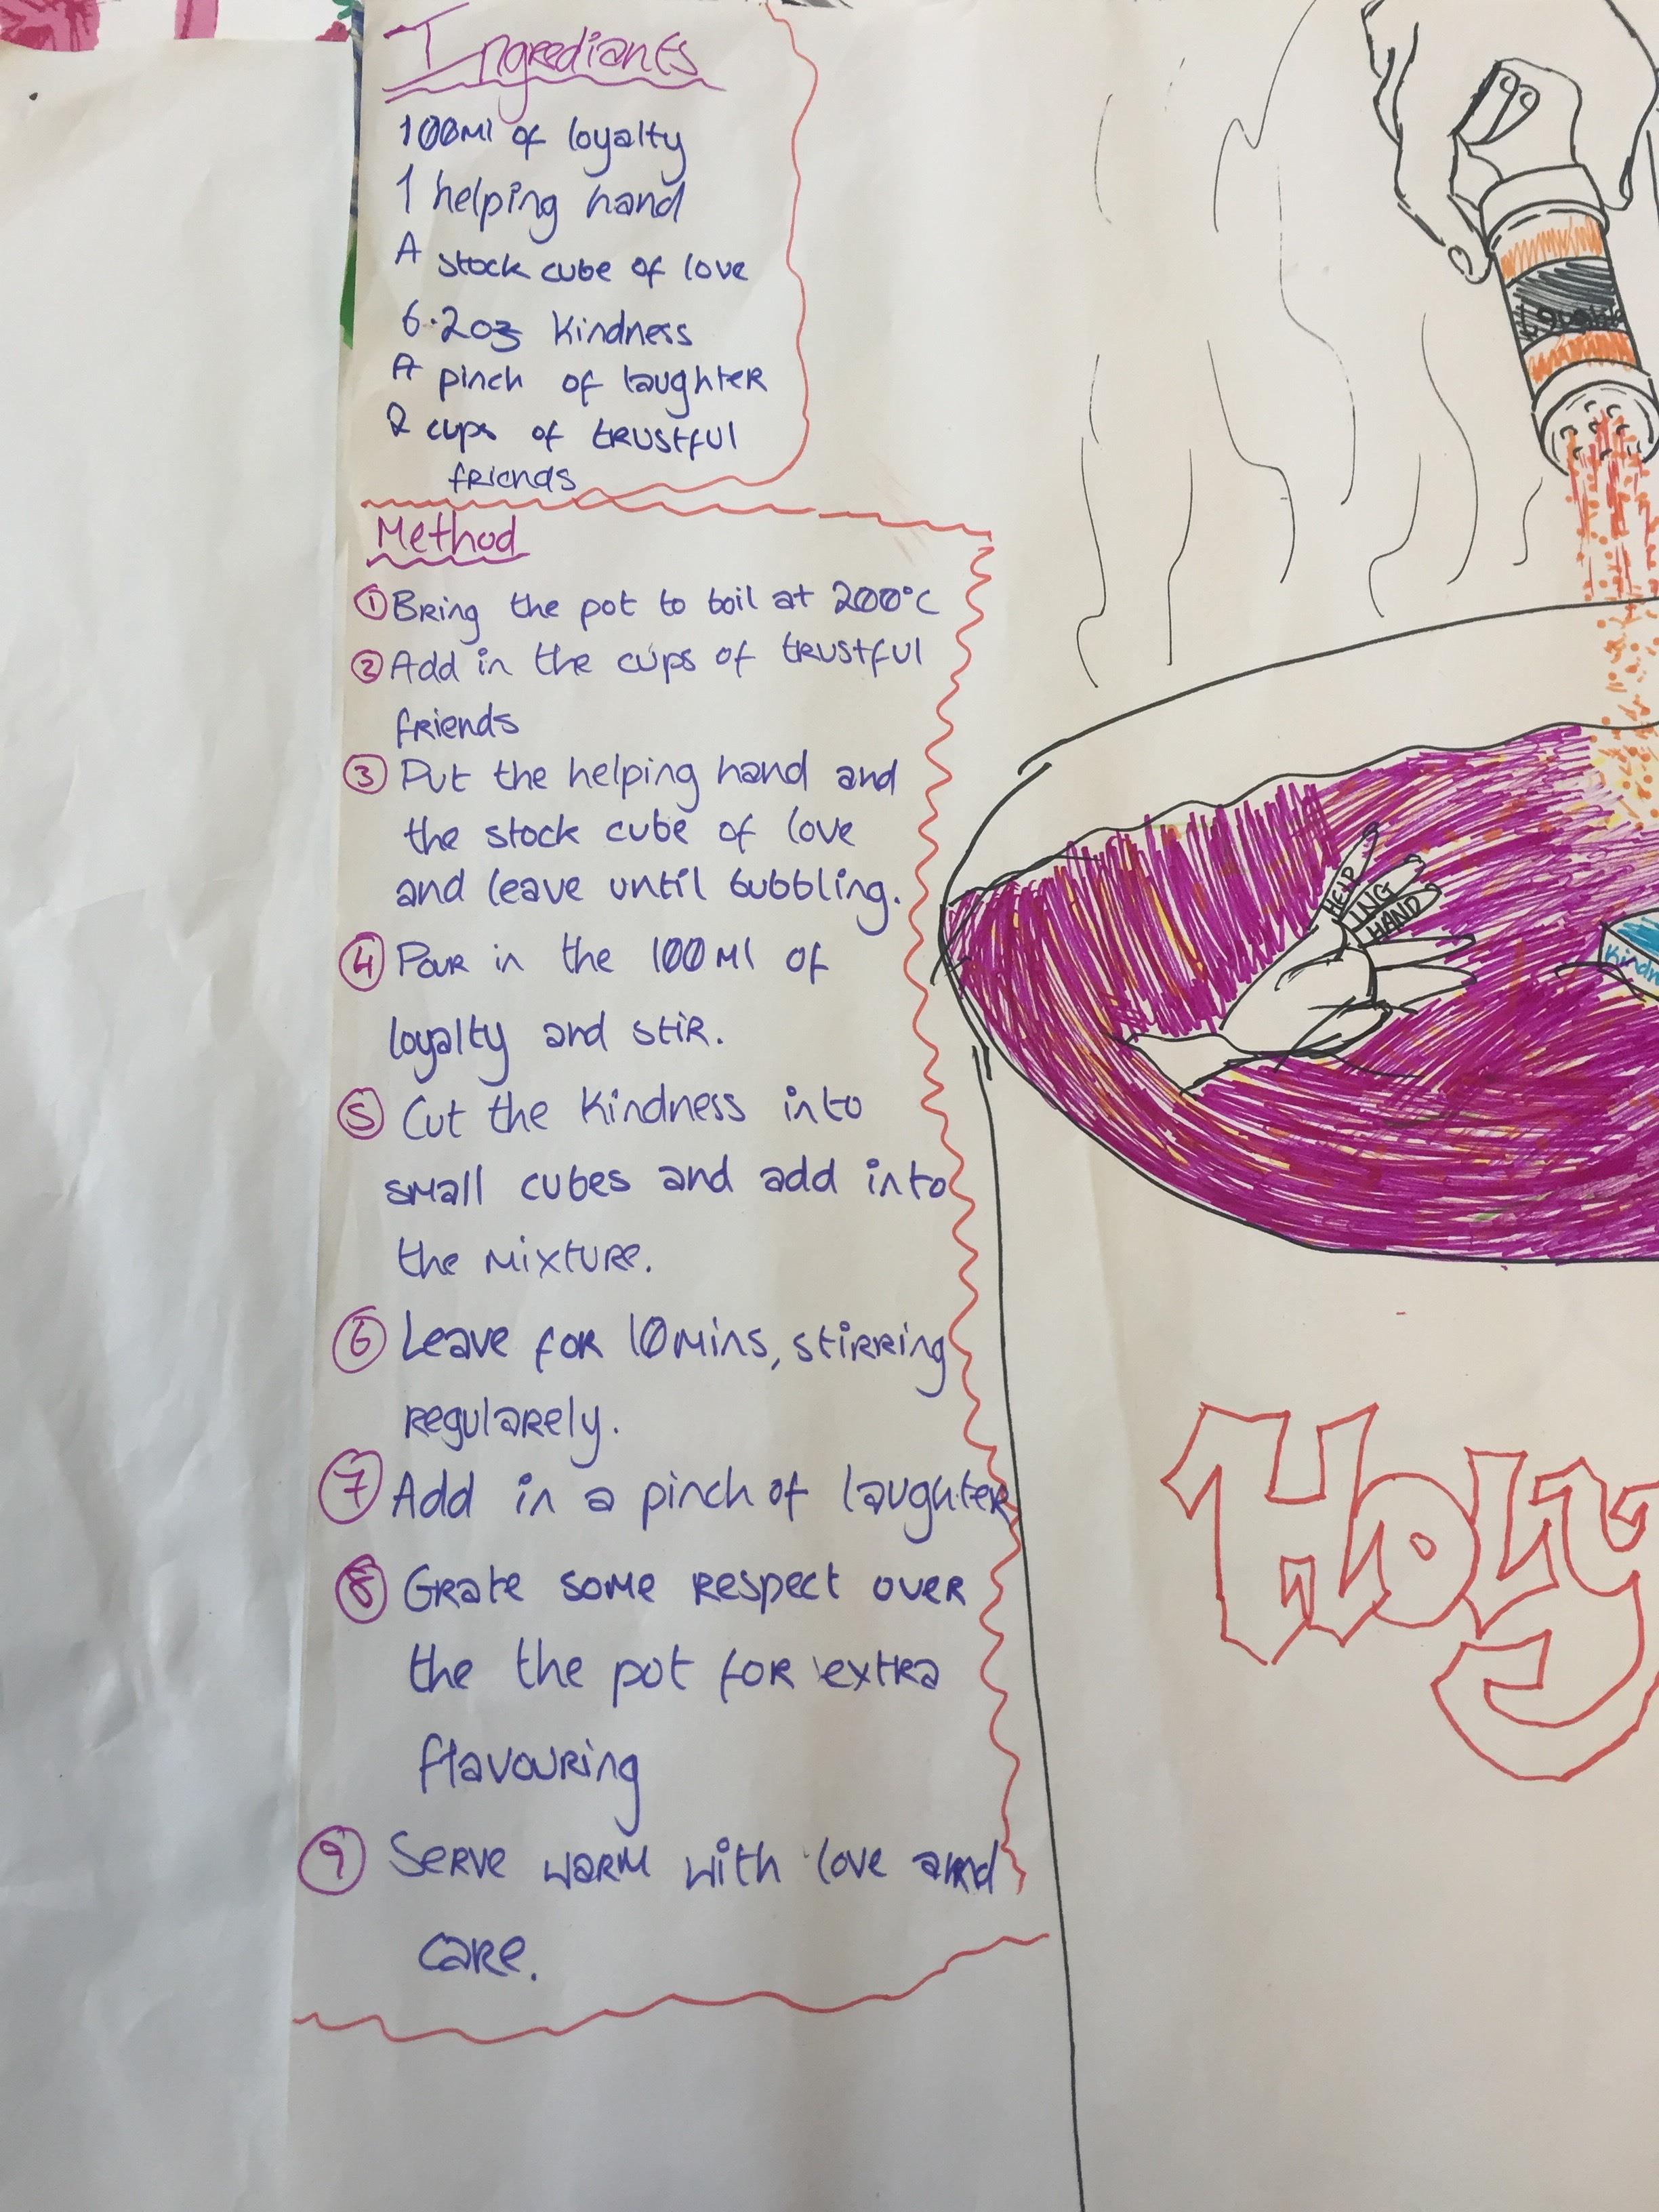 Ingrediants
100ml of loyalty
1 helping hand
A stock cube of love
6.2oz kindness
A pinch of laughter
2 cups of trustful
friends
Method
① Bring the pot to boil at 200°C
② Add in the cups of trustful
friends
③ Put the helping hand and
the stock cube of love
and leave until bubbling.
④ Pour in the 100ml of
loyalty and stir.
⑤ Cut the kindness into
small cubes and add into
the mixture.
⑥ Leave for 10 mins, stirring
regularely.
⑦ Add in a pinch of laughter
⑧ Grate some respect over
the the pot for extra
flavouring
⑨ Serve warm with love and
care.
HELP
ING
HAND
Kindn
Holy